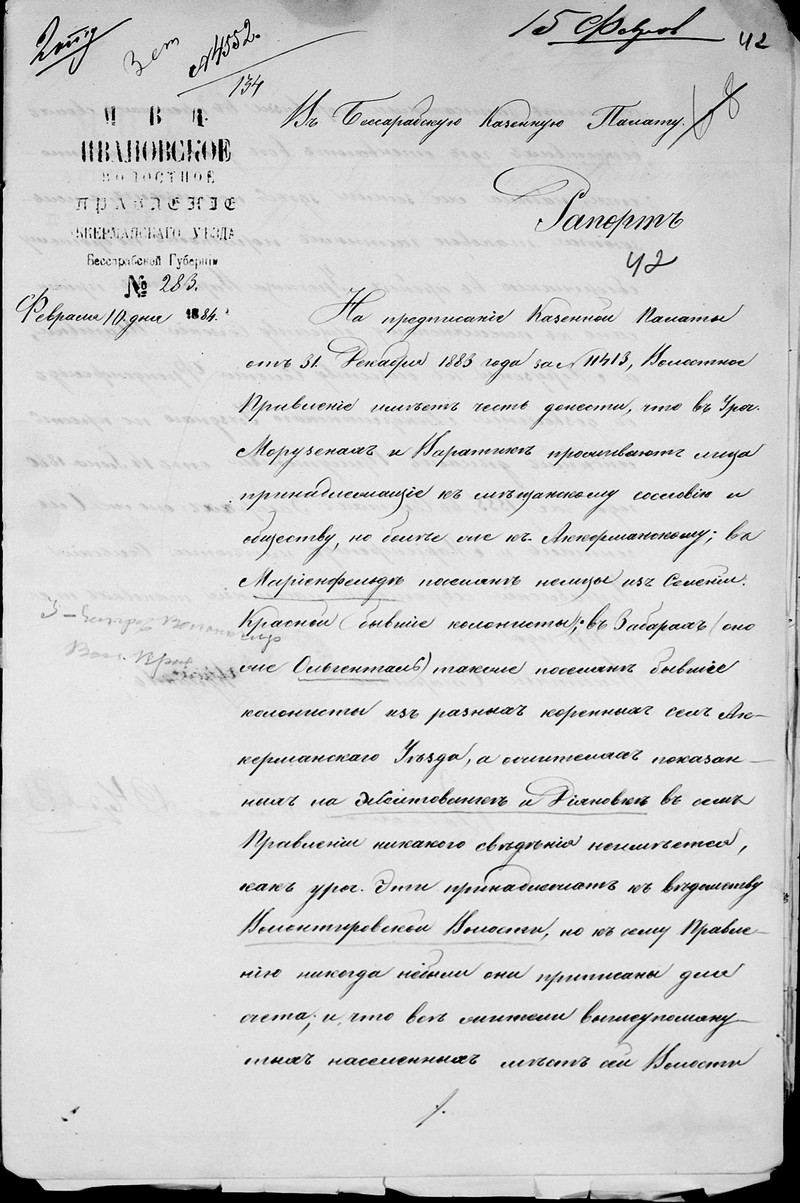 15 Феврал
42
№4552.
134
М В Д
ИВАНОВСКОЕ
ВОЛОСТНОЕ
ПРАВЛЕНІЕ
АККЕРМАНСКАГО УѢЗДА
Бессарабской Губерніи
№ 283.
Февраля 10 дня 1884.
Въ Бессарабскую Казенную Палату.
Рапортъ
42
На предписаніе Казенной Палаты
отъ 31. Декабря 1883 года за № 11413, Волостное
Правленіе имѣетъ честь донести, что въ Уроч.
и проживаютъ лица
принадлежащіе къ мѣщанскому сословію и
обществу, но болѣе же къ Аккерманскому; въ
Маріенфельдѣ поселянѣ немцы изъ Селенія.
Красной (бывшіе колонисты); въ Забарахъ (оно
же Ольгенталь) также поселянѣ бывшіе
колонисты изъ разныхъ коренныхъ селъ Ак-
керманскаго Уѣзда, а о жителяхъ показан-
ныхъ на и въ семъ
Правленіи никакого свѣдѣнія неимѣется,
какъ уроч. Эти принадлежатъ къ вѣдомству
Волонтировской Волости, но къ сему Правле-
нію никогда небыли они приписаны для
счета; и, что всѣ жители вышеупомяну-
тыхъ населенныхъ мѣстъ сей Волости